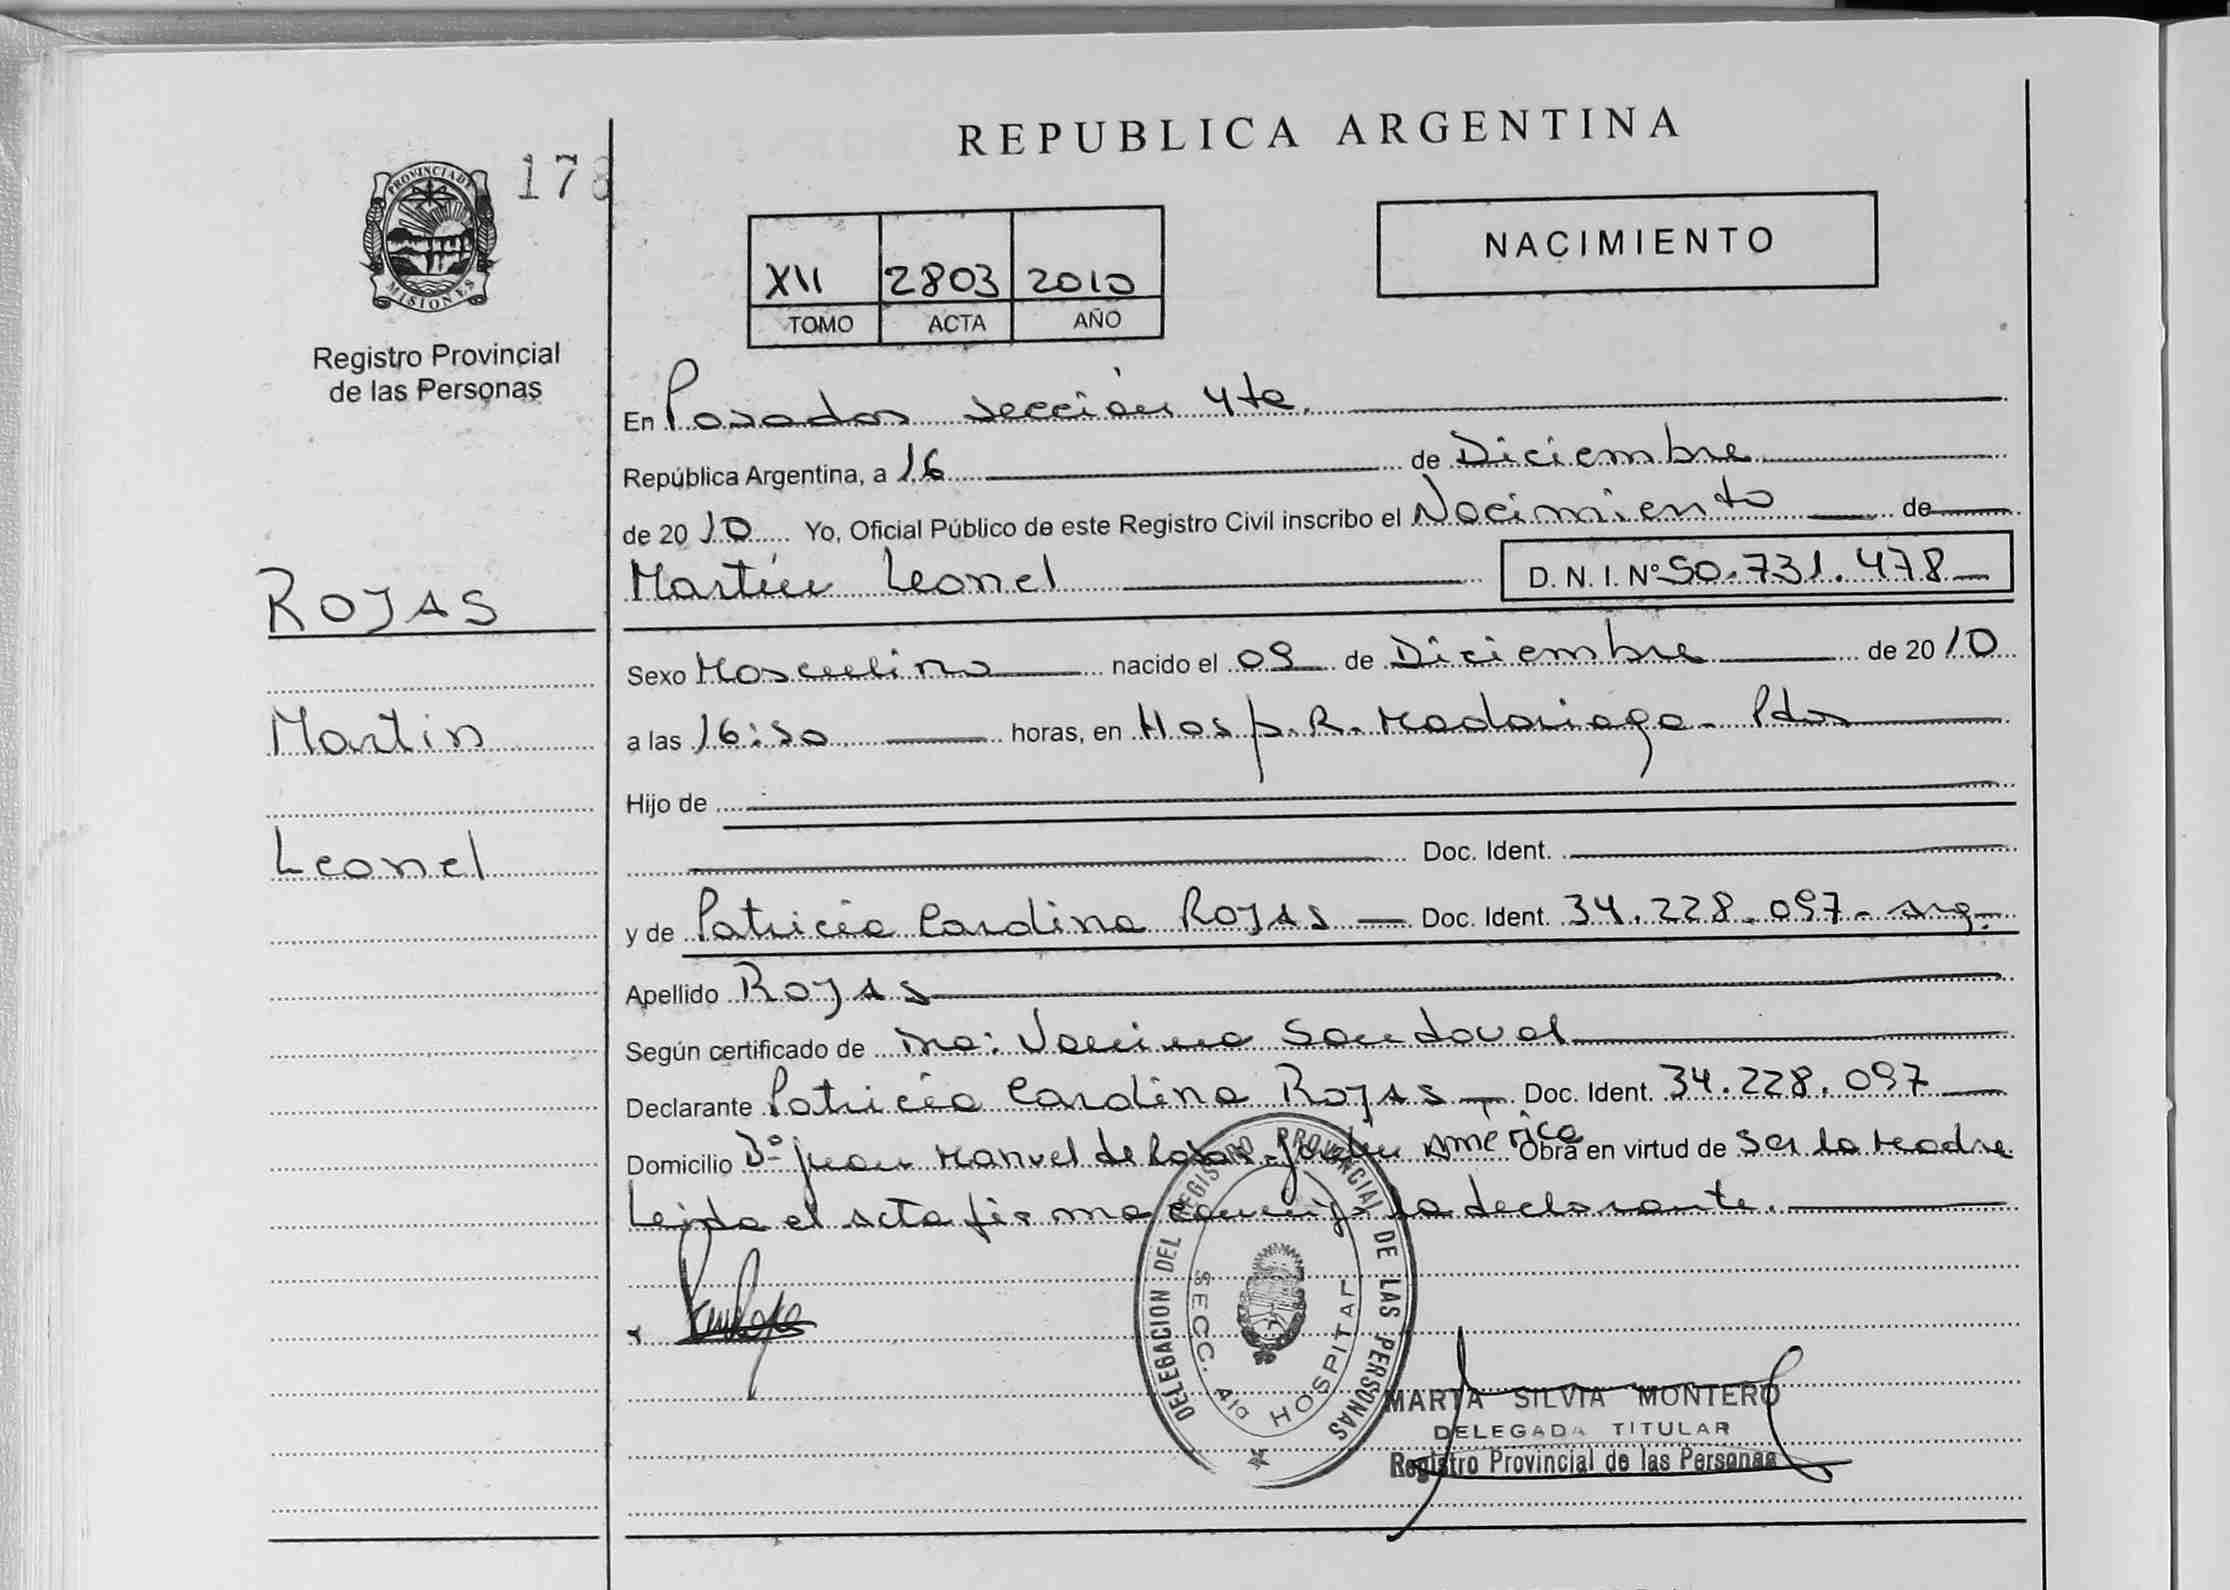 REPUBLICA ARGENTINA
PROVINCIA DE
MISIONES
178
Registro Provincial
de las Personas
NACIMIENTO
XII 2803 2010
TOMO ACTA AÑO
En Posadas sección 4ta.
República Argentina, a 16 de Diciembre
de 2010 Yo, Oficial Público de este Registro Civil inscribo el Nacimiento de
Martín Leonel D. N. I. Nº 50.731.478
ROJAS
Martin
Leonel
Sexo Masculino nacido el 09 de Diciembre de 2010
a las 16:50 horas, en Hosp. R. Madariaga - Pdas
Hijo de
Doc. Ident.
y de Patricia Carolina ROJAS Doc. Ident. 34.228.097 - Arg.
Apellido ROJAS
Según certificado de Sandoval
Declarante Patricia Carolina ROJAS Doc. Ident. 34.228.097
Domicilio Bº Juan Manuel de Rosas - Jardín América Obra en virtud de Ser la Madre
Leída el acta firma conmigo la declarante.
DELEGACION DEL REGISTRO PROVINCIAL DE LAS PERSONAS
SECC. 4ta HOSPITAL
MARTA SILVIA MONTERO
DELEGADA TITULAR
Registro Provincial de las Personas